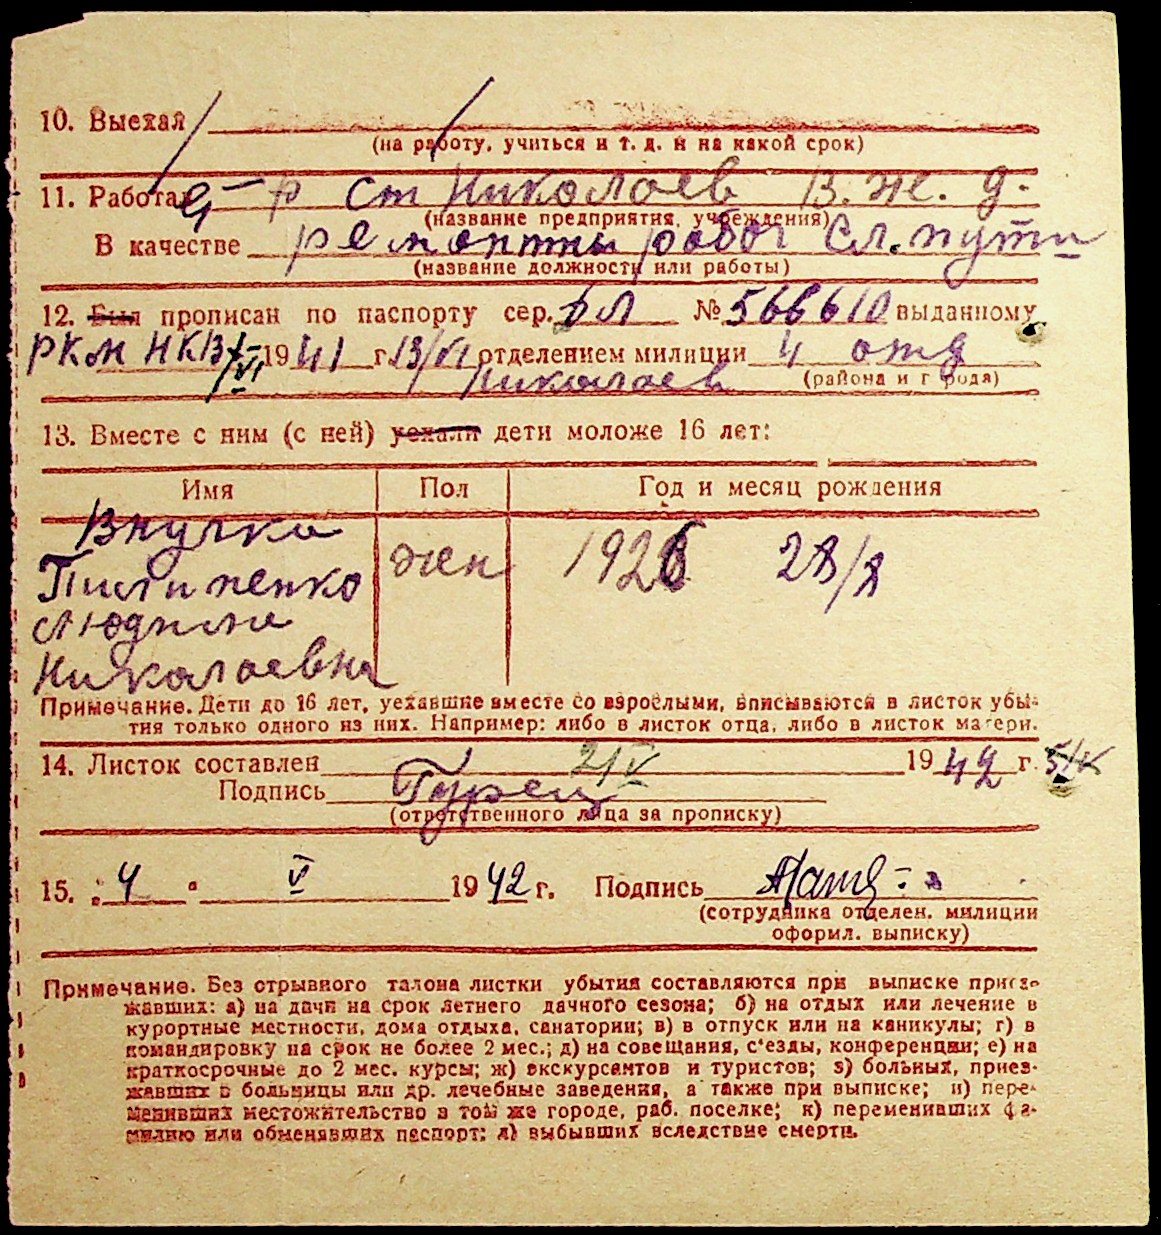 10. Выехал
(на работу, учиться и т. д. и на какой срок)
11. Работал ст Николаев В. Же. д.
(название предприятия, учреждения)
В качестве ремонтны работ Сл. пути
(название должности или работы)
12. Был прописан по паспорту сер. № 566610 выданному
РКМ НКВД VI 1941 г. 13/VI отделением милиции 4 отд
Николаев (района и города)
13. Вместе с ним (с ней) уехали дети моложе 16 лет:
Имя Пол Год и месяц рождения
Внучка
жен 1926 28/8
Пилипенко
Людмила
Николаевна
Примечание. Дети до 16 лет, уехавшие вместе со взрослыми, вписываются в листок убы-
тия только одного из них. Например: либо в листок отца, либо в листок матери.
14. Листок составлен 21/V 1942 г.
Подпись Гурец
(ответственного лица за прописку)
15. „4“ V 1942 г. Подпись
(сотрудника отделен. милиции
оформл. выписку)
Примечание. Без отрывного талона листки убытия составляются при выписке приез-
жавших: а) на дачи на срок летнего дачного сезона; б) на отдых или лечение в
курортные местности, дома отдыха, санатории; в) в отпуск или на каникулы; г) в
командировку на срок не более 2 мес.; д) на совещания, с'езды, конференции; е) на
краткосрочные до 2 мес. курсы; ж) экскурсантов и туристов; з) больных, приез-
жавших в больницы или др. лечебные заведения, а также при выписке; и) пере-
менивших местожительство в том же городе, раб. поселке; к) переменивших фа-
милию или обменявших паспорт; л) выбывших вследствие смерти.